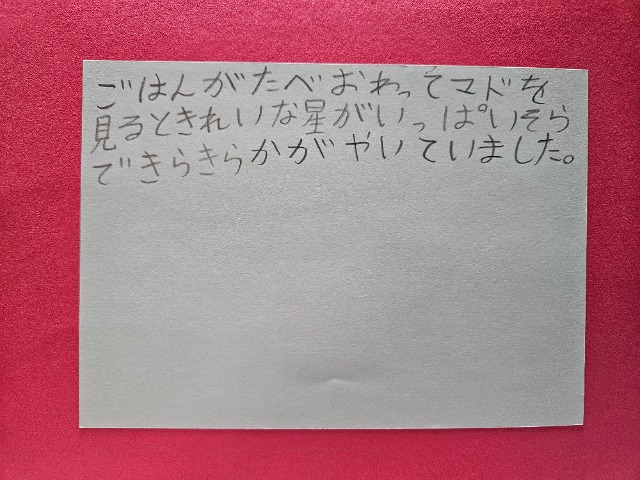 ごはんがたべおわってマドを
見るときれいな星がいっぱいそら
できらきらかがやいていました。